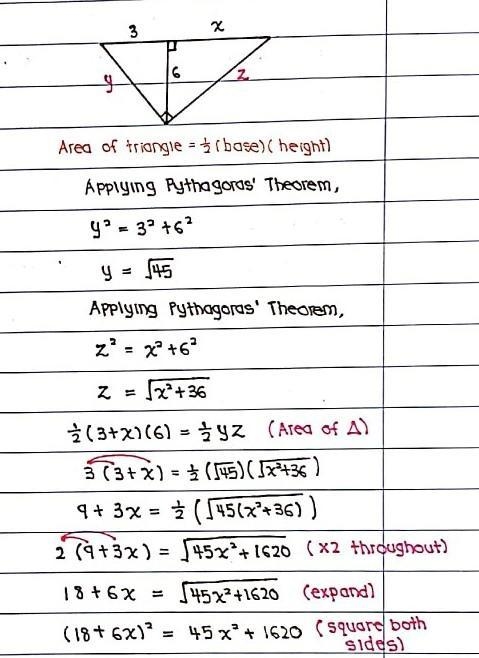 3 x
6
y z
Area of triangle = ½ (base)(height)
Applying Pythagoras' Theorem,
y² = 3² + 6²
y = √45
Applying Pythagoras' Theorem,
z² = x² + 6²
z = √(x² + 36)
½ (3 + x)(6) = ½ yz (Area of Δ)
3 (3 + x) = ½ (√45)(√(x² + 36))
9 + 3x = ½ (√(45(x² + 36)))
2 (9 + 3x) = √(45x² + 1620) (x2 throughout)
18 + 6x = √(45x² + 1620) (expand)
(18 + 6x)² = 45x² + 1620 (square both
sides)